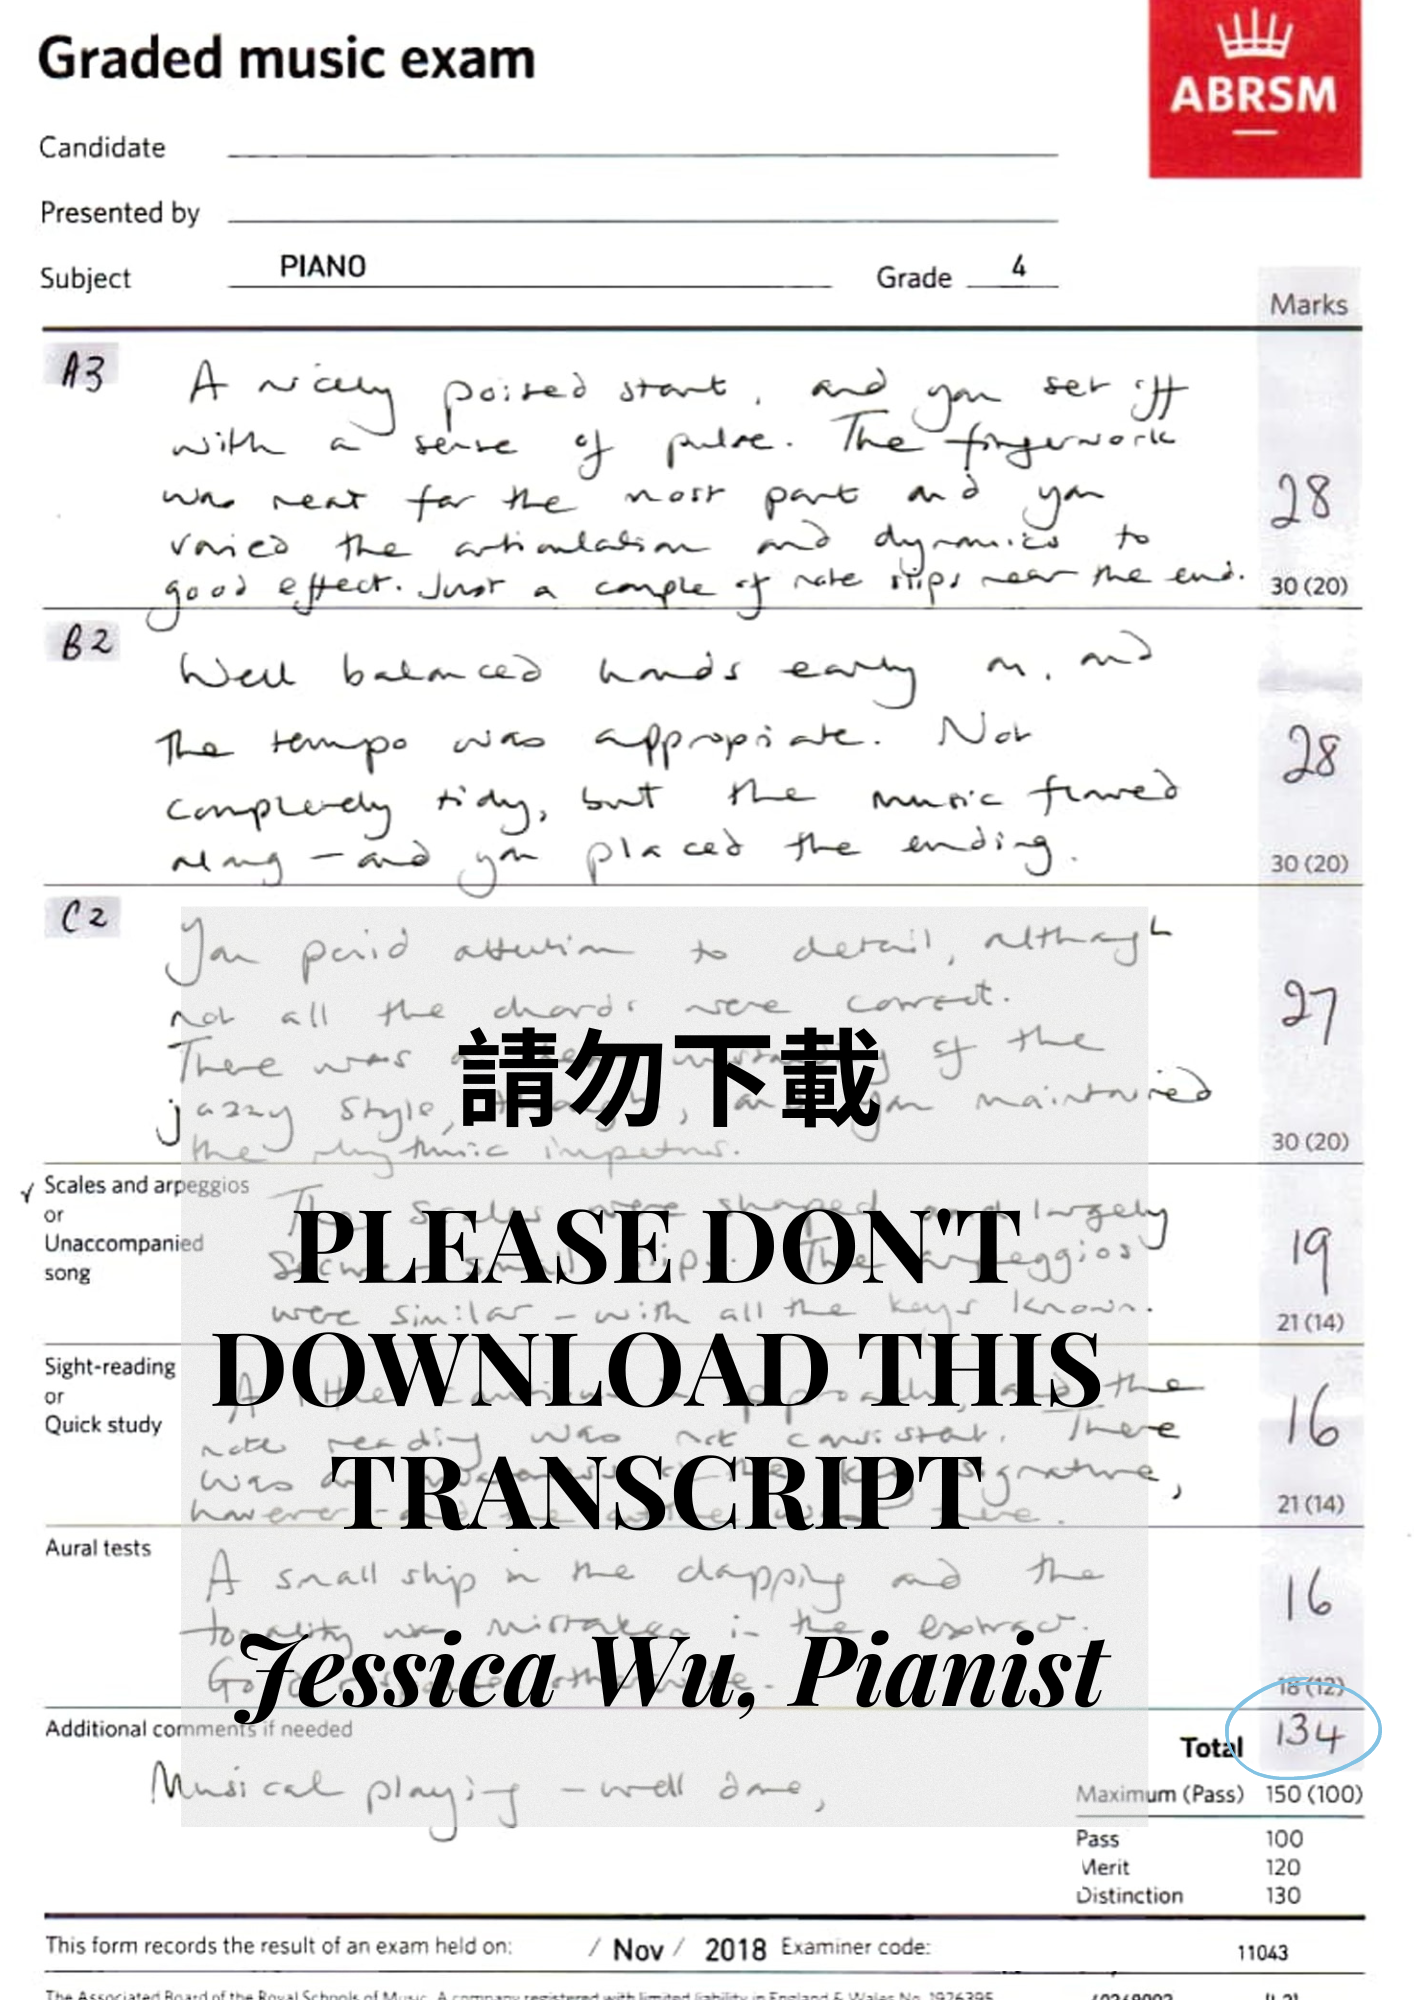 Graded music exam
ABRSM
Candidate
Presented by
Subject PIANO Grade 4
Marks
A3 A nicely poised start, and you set off
with a sense of pulse. The fingerwork
was neat for the most part and you
varied the articulation and dynamics to
good effect. Just a couple of note slips near the end.
28
30 (20)
B2 Well balanced hands early on, and
the tempo was appropriate. Not
completely tidy, but the music flowed
along – and you placed the ending.
28
30 (20)
C2 You paid attention to detail, although
not all the chords were correct.
There was a understanding of the
jazzy style, though, and you maintained
the rhythmic impetus.
27
30 (20)
請勿下載
✓ Scales and arpeggios
or
Unaccompanied
song
The scales were shaped and largely
secure – small slips. The arpeggios
were similar – with all the keys known.
19
21 (14)
PLEASE DON'T
DOWNLOAD THIS
TRANSCRIPT
Sight-reading
or
Quick study
A little cautious in approach, and the
note reading was not consistent. There
was the key signature,
however
16
21 (14)
Aural tests
A small slip in the clapping and the
tonality was mistaken in the extract.
Good otherwise.
16
18 (12)
Jessica Wu, Pianist
Additional comments if needed
Musical playing – well done,
Total 134
Maximum (Pass) 150 (100)
Pass 100
Merit 120
Distinction 130
This form records the result of an exam held on: / Nov / 2018 Examiner code: 11043
The Associated Board of the Royal Schools of Music. A company registered with limited liability in England & Wales No. 1926395